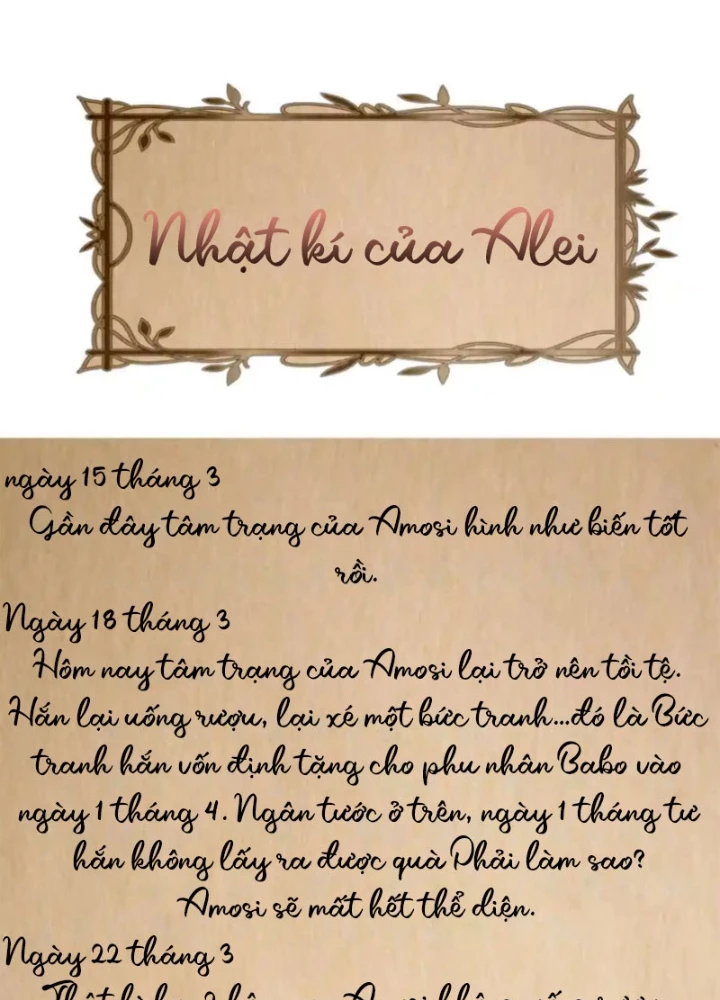 Nhật kí của Alei
ngày 15 tháng 3
Gần đây tâm trạng của Amosi hình như biến tốt
rồi.
Ngày 18 tháng 3
Hôm nay tâm trạng của Amosi lại trở nên tồi tệ.
Hắn lại uống rượu, lại xé một bức tranh...đó là Bức
tranh hắn vốn định tặng cho phu nhân Babo vào
ngày 1 tháng 4. Ngân tước ở trên, ngày 1 tháng tư
hắn không lấy ra được quà Phải làm sao?
Amosi sẽ mất hết thể diện.
Ngày 22 tháng 3